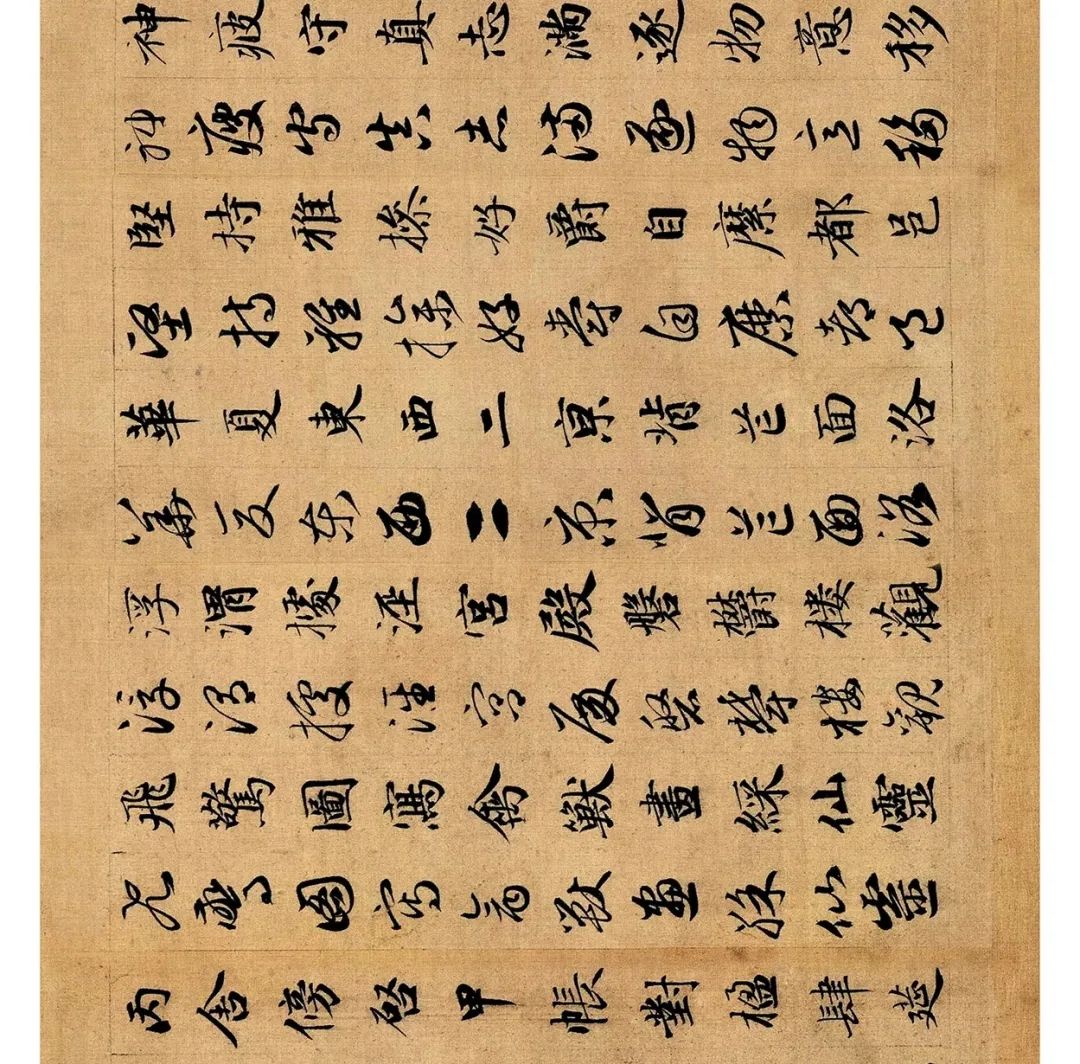 神疲守真志滿逐物意移
神疲守真志滿逐物意移
堅持雅操好爵自縻都邑
堅持雅操好爵自縻都邑
華夏東西二京背芒面洛
華夏東西二京背芒面洛
浮渭據涇宮殿磐欝樓觀
浮渭據涇宮殿磐欝樓觀
飛驚圖寫禽獸畫綵仙靈
飛驚圖寫禽獸畫綵仙靈
丙舍傍啓甲帳對楹肆筵